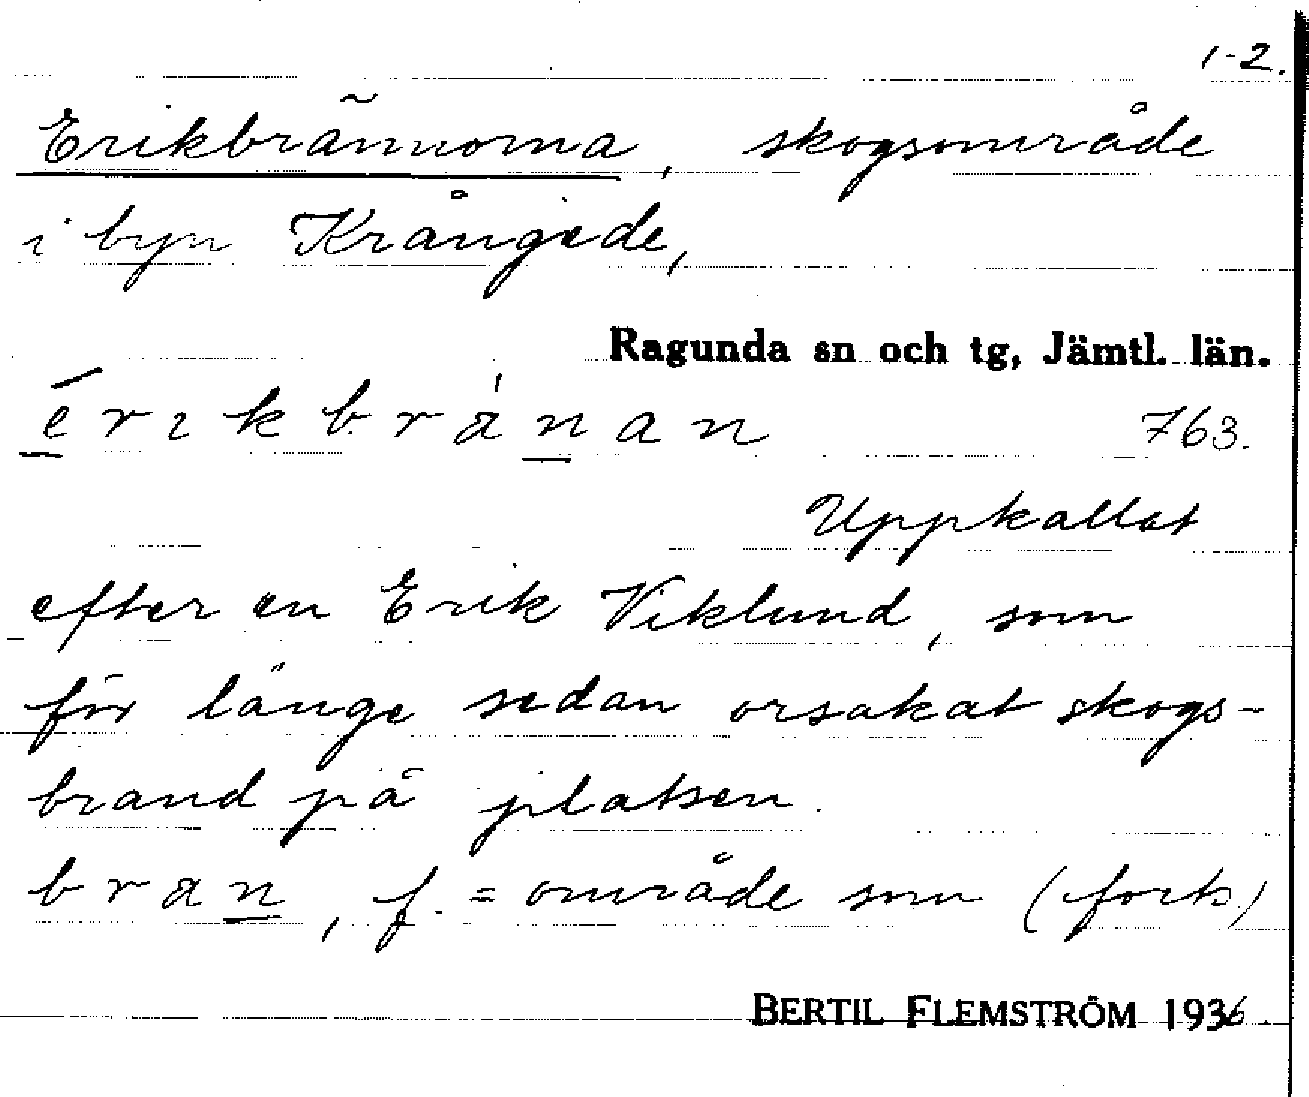 1-2.
Erikbrännorna, skogsområde
i byn Krångede,
Ragunda sn och tg, Jämtl. län.
é r ı k b r a̍ n a n 763.
Uppkallat
efter en Erik Viklund, som
för länge sedan orsakat skogs-
brand på platsen.
b r a n, f. = område som (forts.)
BERTIL FLEMSTRÖM 1936.